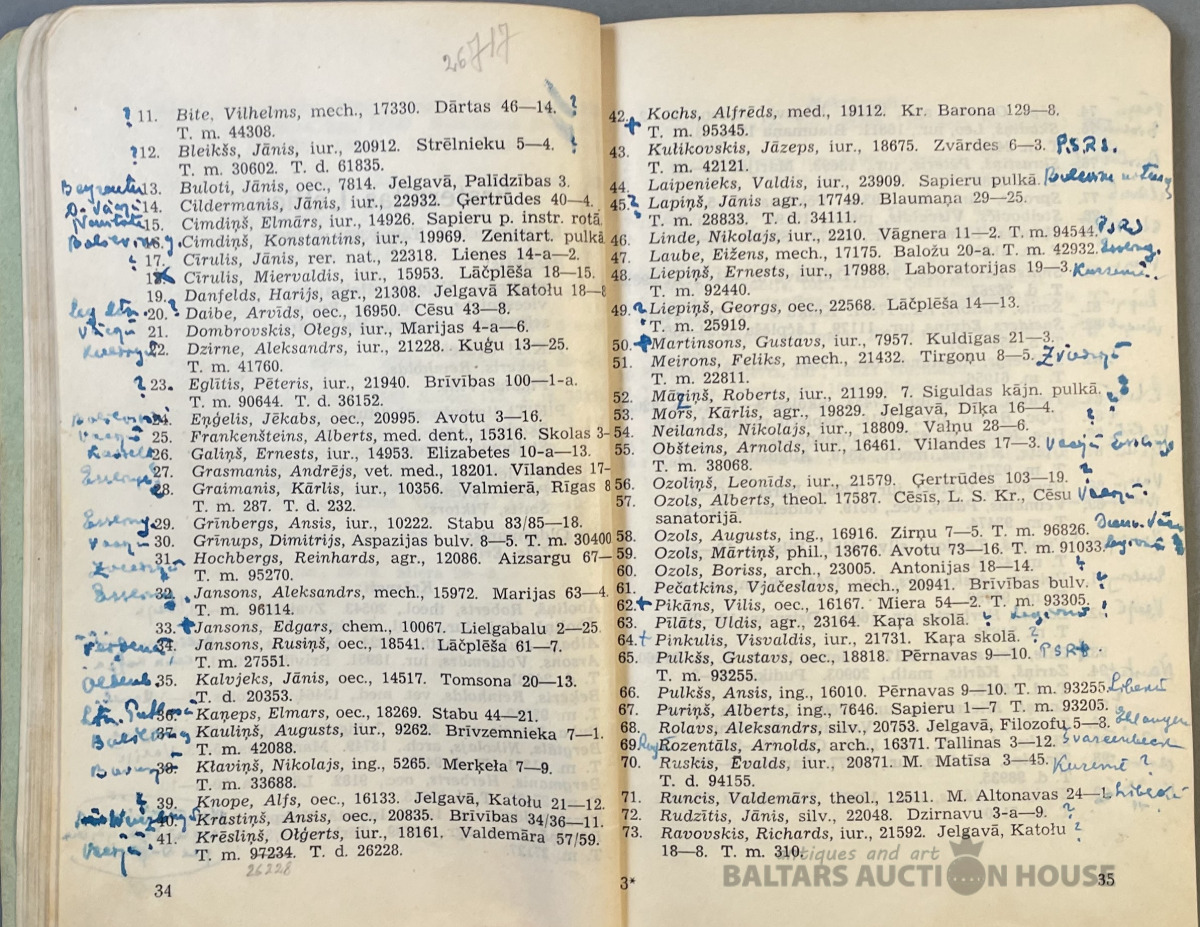 26717
? 11. Bite, Vilhelms, mech., 17330. Dārtas 46—14. ?
T. m. 44308.
? 12. Bleikšs, Jānis, iur., 20912. Strēlnieku 5—4. ?
T. m. 30602. T. d. 61835.
13. Buloti, Jānis, oec., 7814. Jelgavā, Palīdzības 3.
14. Cildermanis, Jānis, iur., 22932. Ģertrūdes 40—4.
15. Cimdiņš, Elmārs, iur., 14926. Sapieru p. instr. rotā
16. Cimdiņš, Konstantins, iur., 19969. Zenitart. pulkā
17. Cīrulis, Jānis, rer. nat., 22318. Lienes 14—a—2.
18. Cīrulis, Miervaldis, iur., 15953. Lāčplēša 18—15.
19. Danfelds, Harijs, agr., 21308. Jelgavā Katoļu 18—8
20. ? Daibe, Arvīds, oec., 16950. Cēsu 43—8.
Vācijā 21. Dombrovskis, Oļegs, iur., Marijas 4-a—6.
22. Dzirne, Aleksandrs, iur., 21228. Kuģu 13—25.
T. m. 41760.
? 23. Eglītis, Pēteris, iur., 21940. Brīvības 100—1-a.
T. m. 90644. T. d. 36152.
24. Eņģelis, Jēkabs, oec., 20995. Avotu 3—16.
Vācijā 25. Frankenšteins, Alberts, med. dent., 15316. Skolas 3-
26. Galiņš, Ernests, iur., 14953. Elizabetes 10-a—13.
27. Grasmanis, Andrējs, vet. med., 18201. Vīlandes 17-
28. Graimanis, Kārlis, iur., 10356. Valmierā, Rīgas 8
T. m. 287. T. d. 232.
29. Grīnbergs, Ansis, iur., 10222. Stabu 83/85—18.
Vācijā 30. Grīnups, Dimitrijs, Aspazijas bulv. 8—5. T. m. 30400
31. Hochbergs, Reinhards, agr., 12086. Aizsargu 67—
T. m. 95270.
32. Jansons, Aleksandrs, mech., 15972. Marijas 63—4.
T. m. 96114.
33. + Jansons, Edgars, chem., 10067. Lielgabalu 2—25.
34. Jansons, Rusiņš, oec., 18541. Lāčplēša 61—7.
T. m. 27551.
35. Kalvjeks, Jānis, oec., 14517. Tomsona 20—13.
T. d. 20353.
36. Kaņeps, Elmars, oec., 18269. Stabu 44—21.
37. Kauliņš, Augusts, iur., 9262. Brīvzemnieka 7—1.
T. m. 42088.
38. Kļaviņš, Nikolajs, ing., 5265. Merķeļa 7—9.
T. m. 33688.
39. Knope, Alfs, oec., 16133. Jelgavā, Katoļu 21—12.
40. Krastiņš, Ansis, oec., 20835. Brīvības 34/36—11.
Vācijā 41. Krēsliņš, Oļģerts, iur., 18161. Valdemāra 57/59.
T. m. 97234. T. d. 26228.
26228
34
42. + Kochs, Alfrēds, med., 19112. Kr. Barona 129—8.
T. m. 95345.
43. Kulikovskis, Jāzeps, iur., 18675. Zvārdes 6—3. PSRS.
T. m. 42121.
44. Laipenieks, Valdis, iur., 23909. Sapieru pulkā.
45. ? Lapiņš, Jānis agr., 17749. Blaumaņa 29—25.
T. m. 28833. T. d. 34111.
46. Linde, Nikolajs, iur., 2210. Vāgnera 11—2. T. m. 94544. PSRS
47. Laube, Eižens, mech., 17175. Baložu 20-a. T. m. 42932.
48. Liepiņš, Ernests, iur., 17988. Laboratorijas 19—3. Kurzemē.
T. m. 92440.
49. ? Liepiņš, Georgs, oec., 22568. Lāčplēša 14—13.
T. m. 25919.
50. + Martinsons, Gustavs, iur., 7957. Kuldīgas 21—3.
51. Meirons, Feliks, mech., 21432. Tirgoņu 8—5. Zviedrijā
T. m. 22811.
52. Māziņš, Roberts, iur., 21199. 7. Siguldas kājn. pulkā. ?
53. Mors, Kārlis, agr., 19829. Jelgavā, Dīķa 16—4. ?
54. Neilands, Nikolajs, iur., 18809. Vaļņu 28—6. ?
55. Obšteins, Arnolds, iur., 16461. Vilandes 17—3. Vācijā
T. m. 38068.
56. Ozoliņš, Leonīds, iur., 21579. Ģertrūdes 103—19. ?
57. Ozols, Alberts, theol. 17587. Cēsīs, L. S. Kr., Cēsu Vācijā.
sanatorijā.
58. Ozols, Augusts, ing., 16916. Zirņu 7—5. T. m. 96826.
59. Ozols, Mārtiņš, phil., 13676. Avotu 73—16. T. m. 91033.
60. Ozols, Boriss, arch., 23005. Antonijas 18—14. ?
61. Pečatkins, Vjačeslavs, mech., 20941. Brīvības bulv. ?
62. + Pikāns, Vilis, oec., 16167. Miera 54—2. T. m. 93305.
63. Pīlāts, Uldis, agr., 23164. Kaŗa skolā. ?
64. + Pinkulis, Visvaldis, iur., 21731. Kaŗa skolā. ?
65. Pulkšs, Gustavs, oec., 18818. Pērnavas 9—10. PSRS.
T. m. 93255.
66. Pulkšs, Ansis, ing., 16010. Pērnavas 9—10. T. m. 93255.
67. Puriņš, Alberts, ing., 7646. Sapieru 1—7 T. m. 93205.
68. Rolavs, Aleksandrs, silv., 20753. Jelgavā, Filozofu 5—8.
69. Rozentāls, Arnolds, arch., 16371. Tallinas 3—12.
70. Ruskis, Ēvalds, iur., 20871. M. Matīsa 3—45. Kurzemē ?
T. d. 94155.
71. Runcis, Valdemārs, theol., 12511. M. Altonavas 24—1.
72. Rudzītis, Jānis, silv., 22048. Dzirnavu 3-a—9. ?
73. Ravovskis, Richards, iur., 21592. Jelgavā, Katoļu ?
18—8. T. m. 310.
3*
35
antiques and art
BALTARS AUCTION HOUSE